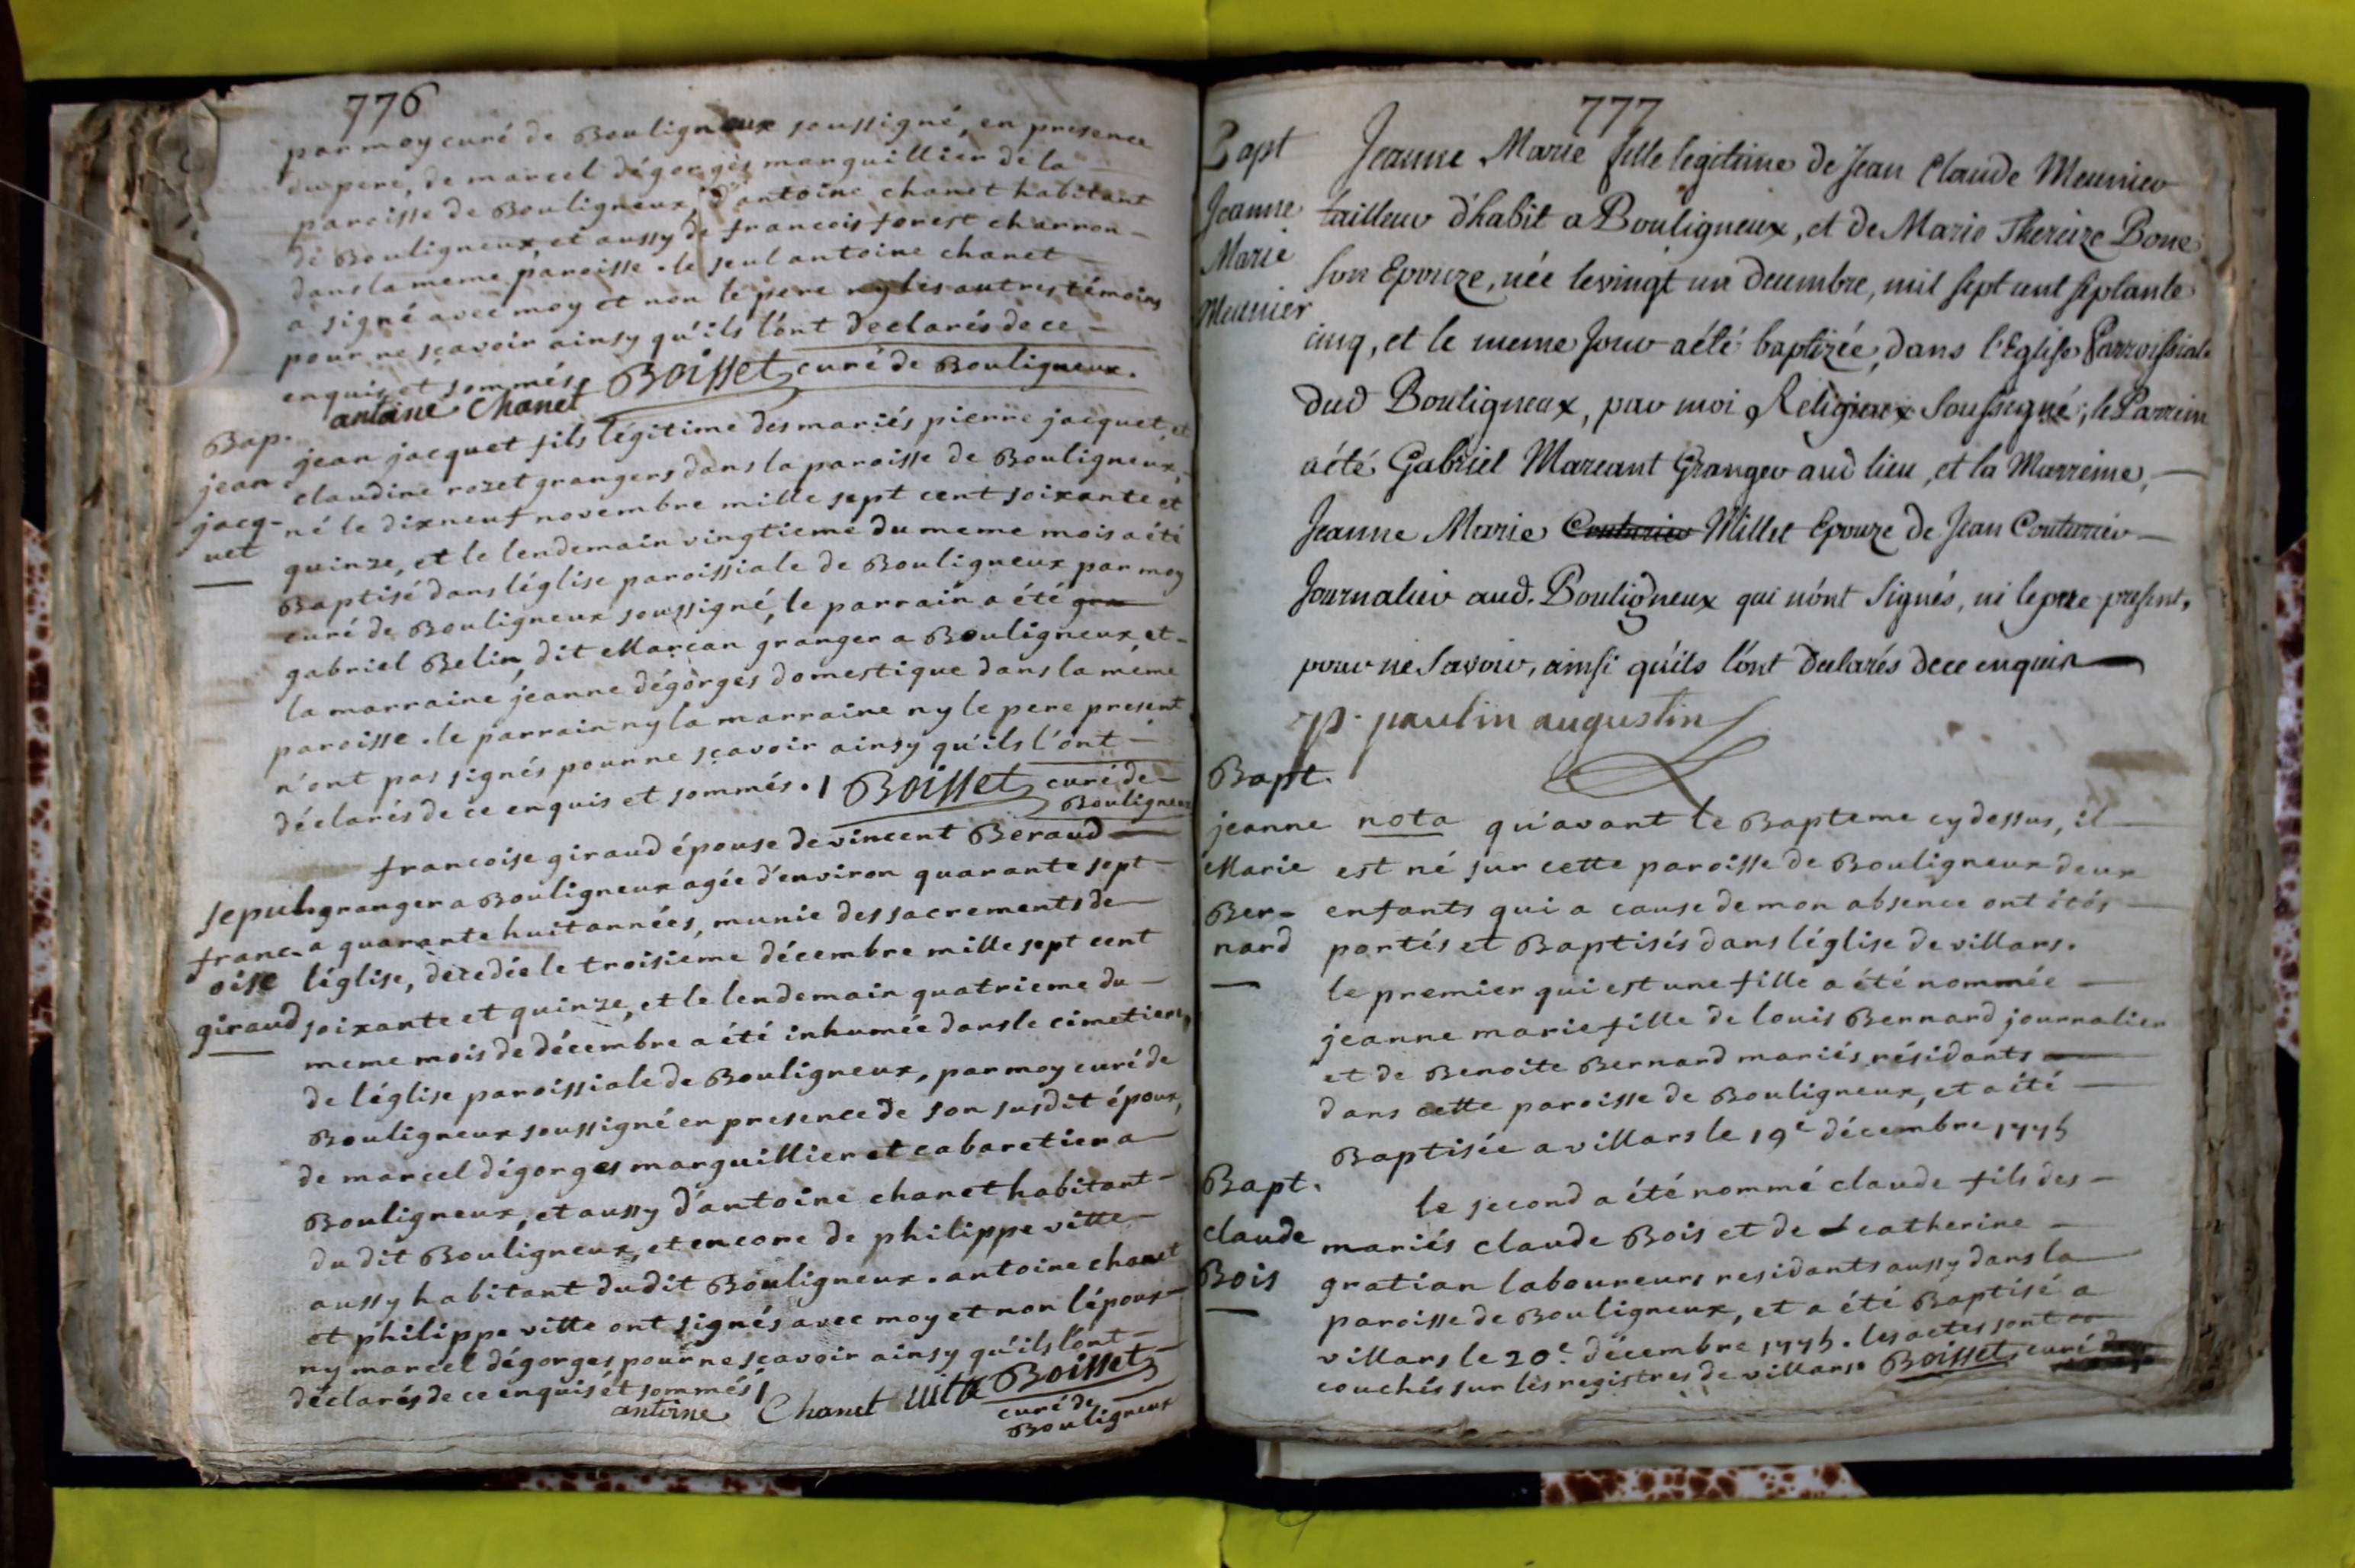 776
par moy curé de Bouligneux soussigné, en presence
du pere, de marcel dégorges marguillier de la
paroisse de Bouligneux, d'antoine chanet habitant
de Bouligneux et aussy de francois forest charron –
dans la meme paroisse. le seul antoine chanet –
a signé avec moy et non le pere ny les autres témoins
pour ne sçavoir ainsy qu'ils l'ont declarés de ce –
enquis et sommés. Boisset curé de Bouligneux.
antoine Chanet
Bap.
jean
jacq-
uet
jean jacquet fils légitime des mariés pierre jacquet, et
claudine rozet grangers dans la paroisse de Bouligneux,
né le dixneuf novembre mille sept cent soixante et
quinze, et le lendemain vingtieme du meme mois a été
Baptisé dans léglise paroissiale de Bouligneux par moy
curé de Bouligneux soussigné, le parrain a été gra
gabriel Belin, dit Marcan granger a Bouligneux, et –
la marraine jeanne dégorges domestique dans la même
paroisse. le parrain ny la marraine ny le pere present
n'ont pas signés pour ne sçavoir ainsy qu'ils l'ont –
déclarés de ce enquis et sommés. Boisset curé de –
Bouligneux
sepul.
franc-
oise
giraud
francoise giraud épouse de vincent Beraud –
granger a Bouligneux agée d'environ quarante sept –
a quarante huit années, munie des sacrements de –
léglise, décedée le troisieme décembre mille sept cent
soixante et quinze, et le lendemain quatrieme du –
meme mois de décembre a été inhumée dans le cimetiere,
de léglise paroissiale de Bouligneux, par moy curé de
Bouligneux soussigné en presence de son susdit époux,
de marcel dégorges marguillier et cabaretier a –
Bouligneux, et aussy d'antoine chanet habitant –
du dit Bouligneux, et encore de philippe vitte –
aussy habitant dudit Bouligneux. antoine chanet
et philippe vitte ont signés avec moy et non lépoux –
ny marcel dégorges pour ne sçavoir ainsy qu'ils l'ont –
déclarés de ce enquis et sommés
antoine Chanet vitte Boisset
curé de
Bouligneux
777
Bapt
Jeanne
Marie
Meunier
Jeanne Marie fille legitime de Jean Claude Meunier
tailleur d'habit a Bouligneux, et de Marie Thereize Bone
son Epouze, née le vingt un decembre, mil sept cent septante
cinq, et le meme jour a été baptizée, dans l'Eglise Parroissiale
dud Bouligneux, par moi Religieux soussigné; le Parrein
a été Gabriel Mareant Granger aud lieu, et la Marreine, –
Jeanne Marie Couturier Millet Epouze de Jean Couturier –
Journalier aud. Bouligneux qui n'ont signés, ni le pere present,
pour ne savoir, ainsi qu'ils l'ont declarés de ce enquis –
p. paulin augustin
Bapt.
jeanne
Marie
Ber-
nard
nota qu'avant le Bapteme cy dessus, il –
est né sur cette paroisse de Bouligneux deux
enfants qui a cause de mon absence ont étés –
portés et Baptisés dans léglise de villars.
le premier qui est une fille a été nommée –
jeanne marie fille de louis Bernard journalier
et de Benoite Bernard mariés résidants –
dans cette paroisse de Bouligneux, et a été –
Baptisée a villars le 19e décembre 1775
Bapt.
claude
Bois
le second a été nommé claude fils des –
mariés claude Bois et de catherine –
gratian laboureurs residants aussy dans la
paroisse de Bouligneux, et a été Baptisé a
villars le 20e décembre 1775. les actes sont
couchés sur les registres de villars. Boisset curé